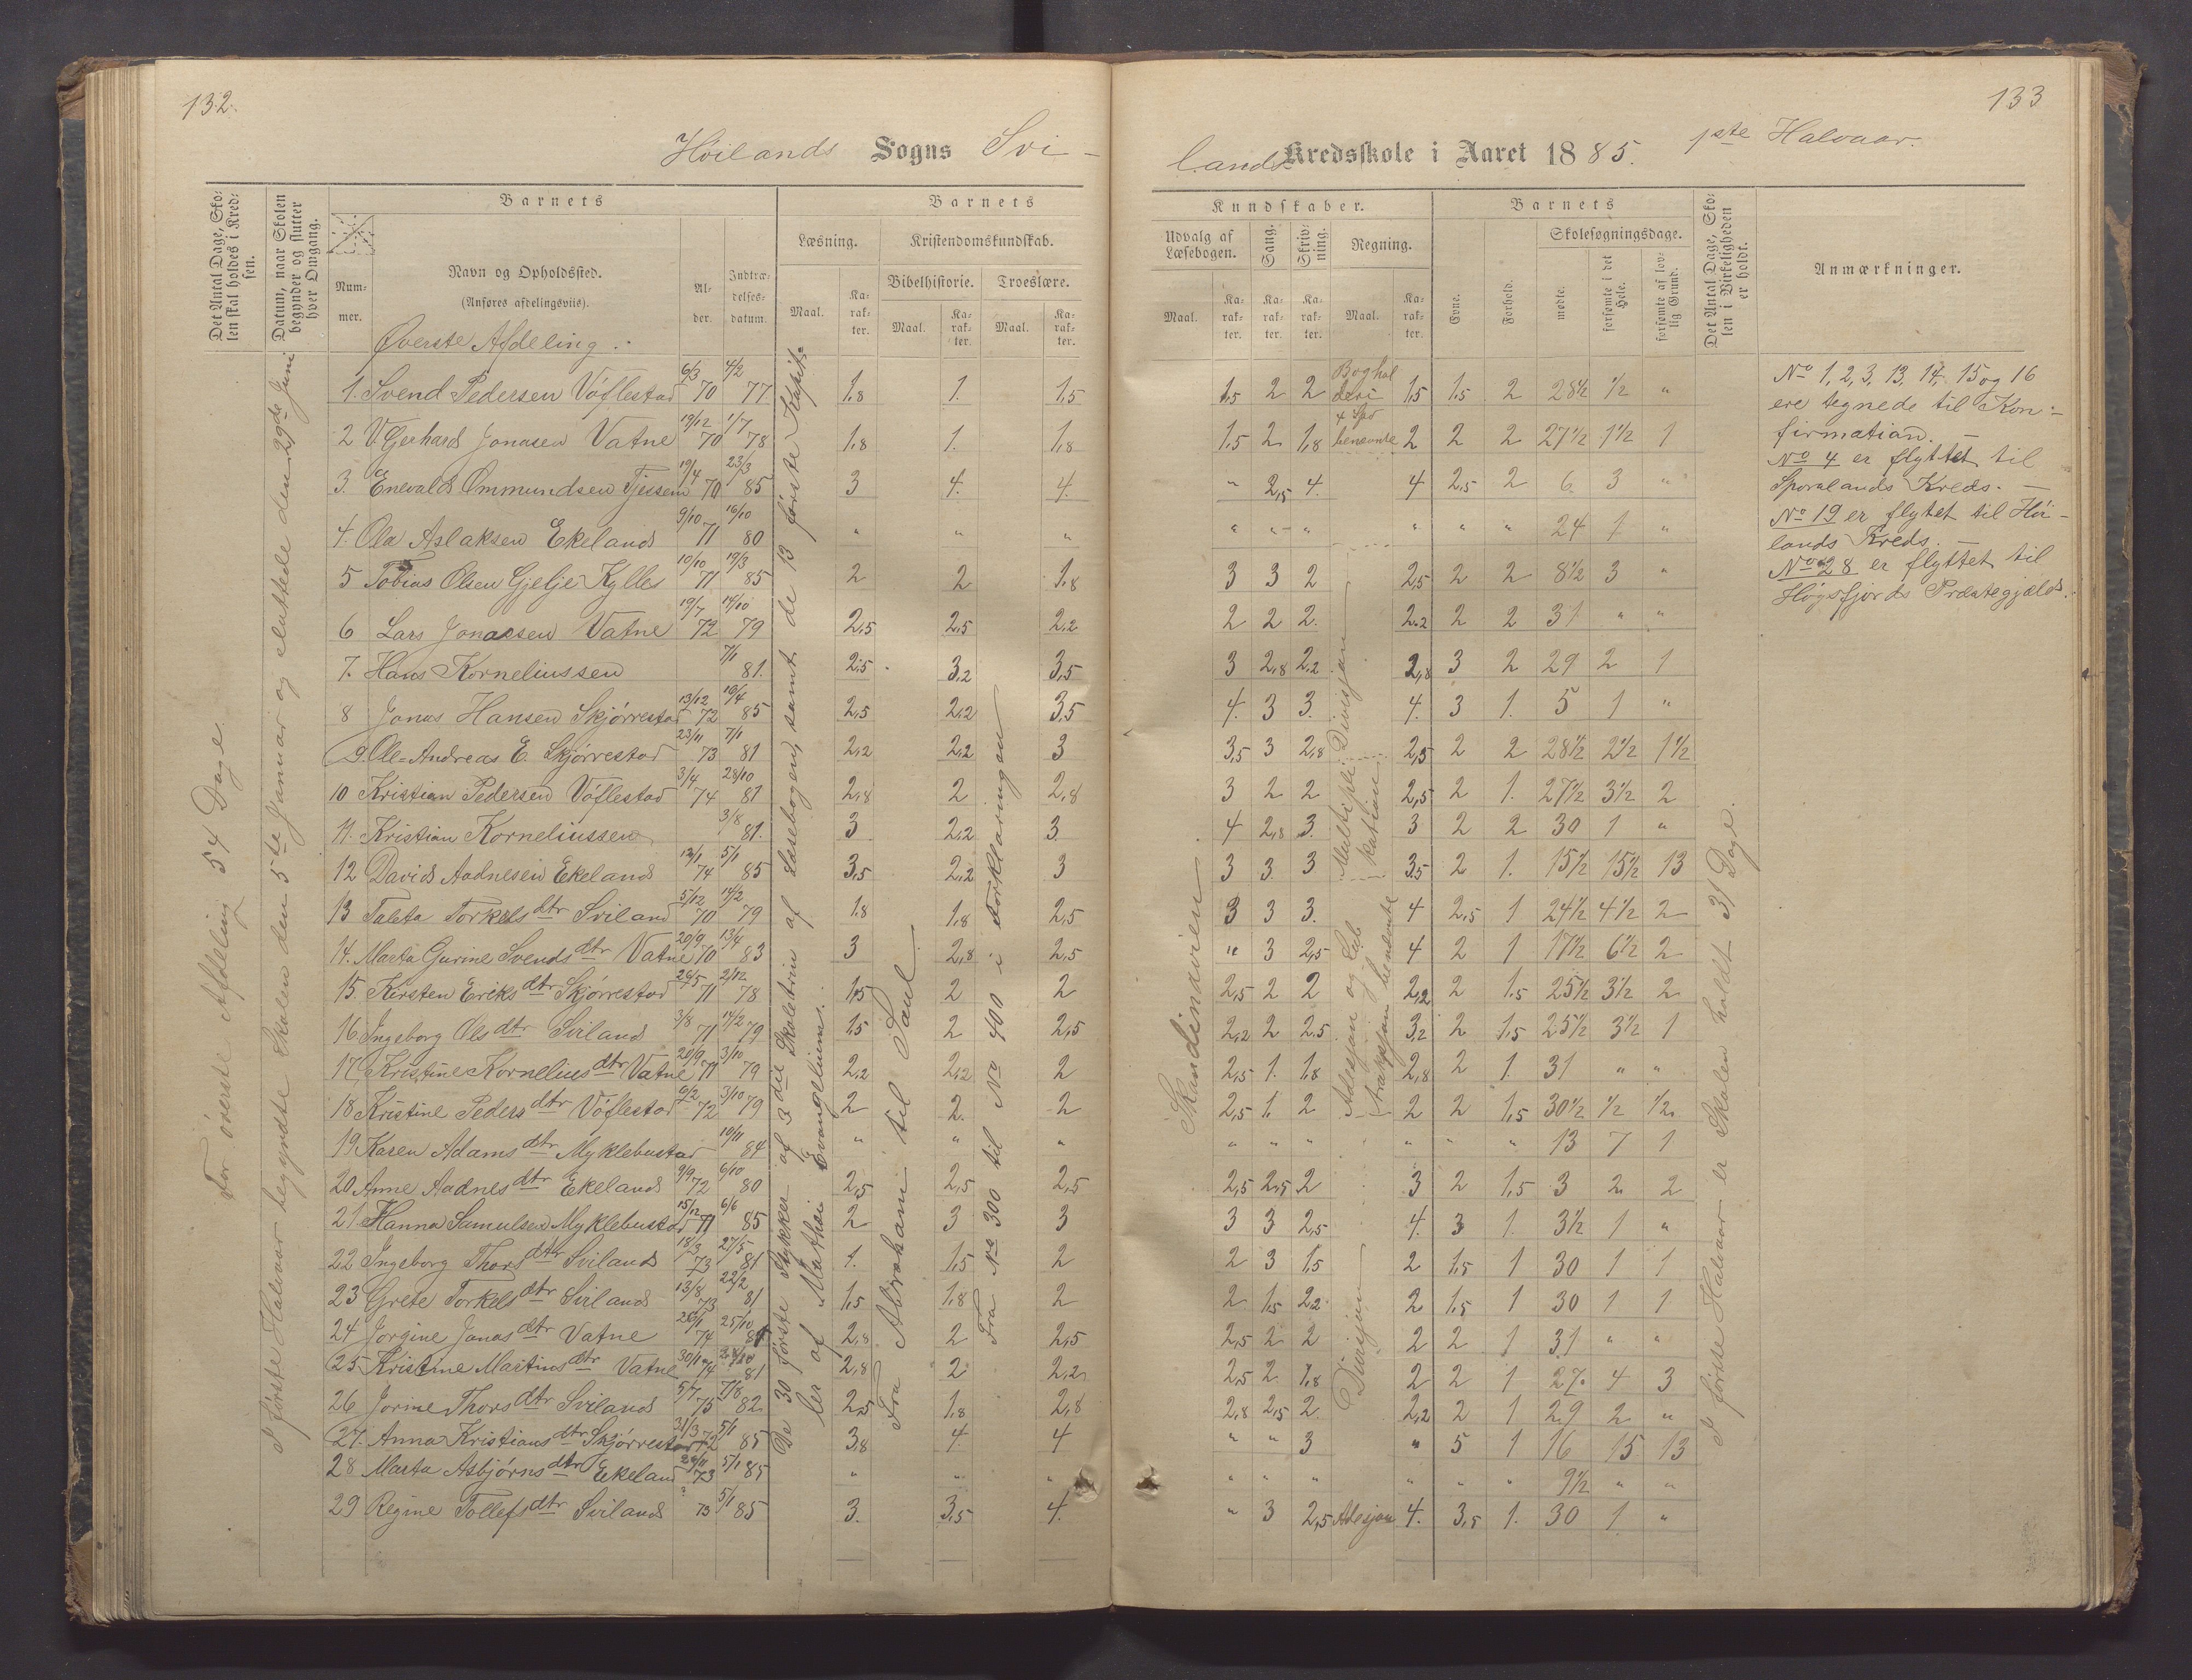 132.
133
Höilands Sogns Svi-
lands Kredsskole i Aaret 1885. 1ste Halvaar.
Det Antal Dage, Sko-
len skal holdes i Kred-
sen.
Datum, naar Skolen
begynder og slutter
hver Omgang.
Barnets
Num-
mer.
Navn og Opholdssted.
(Anføres afdelingsviis).
Al-
der.
Indtræ-
delses-
datum.
Barnets
Læsning.
Maal.
Ka-
rak-
ter.
Kristendomskundskab.
Bibelhistorie.
Maal.
Ka-
rak-
ter.
Troeslære.
Maal.
Ka-
rak-
ter.
Kundskaber.
Udvalg af
Læsebogen.
Maal.
Ka-
rak-
ter.
Sang.
Ka-
rak-
ter.
Skriv-
ning.
Ka-
rak-
ter.
Regning.
Maal.
Ka-
rak-
ter.
Barnets
Evne.
Forhold.
Skolesøgningsdage.
mødte.
forsømte i det
Hele.
forsømte af lov-
lig Grund.
Det Antal Dage, Sko-
len i Virkeligheden
er holdt.
Anmærkninger.
Øverste Afdeling.
For överste Afdeling 54 Dage.
I förste Halvaar begyndte Skolen den 5te Januar og sluttede den 29de Juni
De 30 förste Stykker af 3die Skoletrin af Læsebogen, samt de 13 förste Kapit-
ler af Mathæi Evangelium.
Fra Abraham til Saul
Fra No 300 til No 400 i Forklaringen
Skandinavien.
Boghol
deri
4 Spc
benevnte
Divisjon
Multipli
kation
Adesjon og Sub
traksjon benævnte
Divisjon
I förste Halvaar er Skolen holdt 31 Dage.
1. Svend Pedersen Vöflestad 6/3 70 4/2 77 1,8 1. 1,5 1,5 2 2 1,5 1,5 2 28½ ½ "
2 V. Gerhard Jonasen Vatne 19/12 70 1/7 78 1,8 1. 1,8 1,5 2 1,8 2 2 2 27½ 1½ 1
3. Enevald Ommundsen Tjessem 19/4 70 23/3 85 3 4. 4. " 2,5 4. 4 2,5 2 6 3 "
4. Ola Aslaksen Ekeland 9/10 71 16/10 80 " " " " " " " " " 24 1 "
5 Tobias Olsen Gjelje Kylles 10/10 71 19/3 85 2 2 1,8 3 3 2 2,5 2 2 8½ 3 "
6 Lars Jonassen Vatne 19/7 72 14/10 79 2,5 2,5 2,2 2 2 2. 2,2 2 2 31 " "
7. Hans Korneliussen 7/1 81. 2,5 3,2 3,5 3 2,8 2,2 2,8 3 2 29 2 1
8 Jonas Hansen Skjörrestad 13/12 72 10/4 85 2,5 2,2 3,5 4. 3 3. 4. 3 1. 5 1 "
9. Ole-Andreas E. Skjörrestad 23/11 73 7/1 81 2,2 2,2 3 3,5 3 2,8 2,5 2 2 28½ 2½ 1½
10 Kristian Pedersen Vöflestad 3/4 74 28/10 81 2,8 2 2,8 3 2 2 2,5 2 1. 27½ 3½ 2
11. Kristian Korneliussen 3/8 81. 3 2,2 3. 4 2,8 3. 3 2 2 30 1 "
12 David Aadnesen Ekeland 12/1 74 5/1 85 3,5 2,2 3 3 3. 3 3,5 2 1. 15½ 15½ 13
13 Taleta Torkelsdtr Sviland 5/12 70 14/2 79 1,8 1,8 2,5 3 3 3. 4 2,5 1 24½ 4½ 2
14. Marta Gurine Svendsdtr Vatne 20/9 70 13/4 83 3 2,8 2,5 " 3 2,5 4 2 1 17½ 6½ 2
15. Kirsten Eriksdtr Skjörrestad 26/5 71 2/12 78 1,5 2 2 2,5 2 2 2,2 2 1,5 25½ 3½ 2
16 Ingeborg Olsdtr Sviland 3/8 71 14/2 79 1,5 2 2,5 2,2 2 2,5 3,2 2 1,5 25½ 3½ 1
17 Kristine Korneliusdtr Vatne 20/9 71 3/10 79 2,2 2,2 2 2,5 1. 1,8 2,8 2 1. 31 " "
18 Kristine Pedersdtr Vöflestad 6/2 72 3/10 79 2 2. 2 2,5 1. 2 2 2 1,5 30½ ½ ½
19 Karen Adamsdtr Myklebustad 10/11 84 " " " " " " " " " 13 7 1
20 Anne Aadnesdtr Ekeland 9/9 72 6/10 80 2,5 2,5 2,5 2,5 2,5 2 3 2 1,5 3 2 2
21 Hanna Samulsen Myklebustad 15/12 71 6/6 85 2 3 3 3 3 2,5 4. 3 1 3½ 1 "
22 Ingeborg Thorsdtr Sviland 18/3 73 27/5 81 1. 1,5 2 2 3 1,5 2 1,5 1 30 1 1
23 Grete Torkelsdtr Sviland 13/8 73 22/2 81 1,5 1,8 2 2 1,5 2,2 2 1,5 1 30 1 1
24 Jorgine Jonasdtr Vatne 26/1 74 25/10 81 2,8 2 2,5 2,5 2 2 2 2 1 31 " "
25 Kristine Martinsdtr Vatne 30/11 74 81 2,8 2 2,2 2,5 2 1,8 2 2 1 27. 4 3
26 Jorine Thorsdtr Sviland 5/7 75 7/8 82. 2,5 1,8 2,8 2,8 2,5 2. 2,2 2 1 29 2 "
27. Anna Kristiansdtr Skjörrestad 31/3 72 5/1 85 3,8 4 4 " " 3 " 5 1 16 15 13
28 Marta Asbjörnsdtr Ekeland 24/11 73 5/1 85 " " " " " " " " " 9½ " "
29 Regine Tollefsdtr Sviland ? 73 5/1 85 3. 3,5 4. " 3 2,5 Adesjon 4. 3,5 1. 30 1. "
No 1, 2, 3, 13, 14, 15 og 16
ere tegnede til Kon-
firmation. —
No 4 er flyttet til
Sporalands Kreds. —
No 19 er flytet til Höi-
lands Kreds. —
No 28 er flyttet til
Högsfjords Præstegjæld.